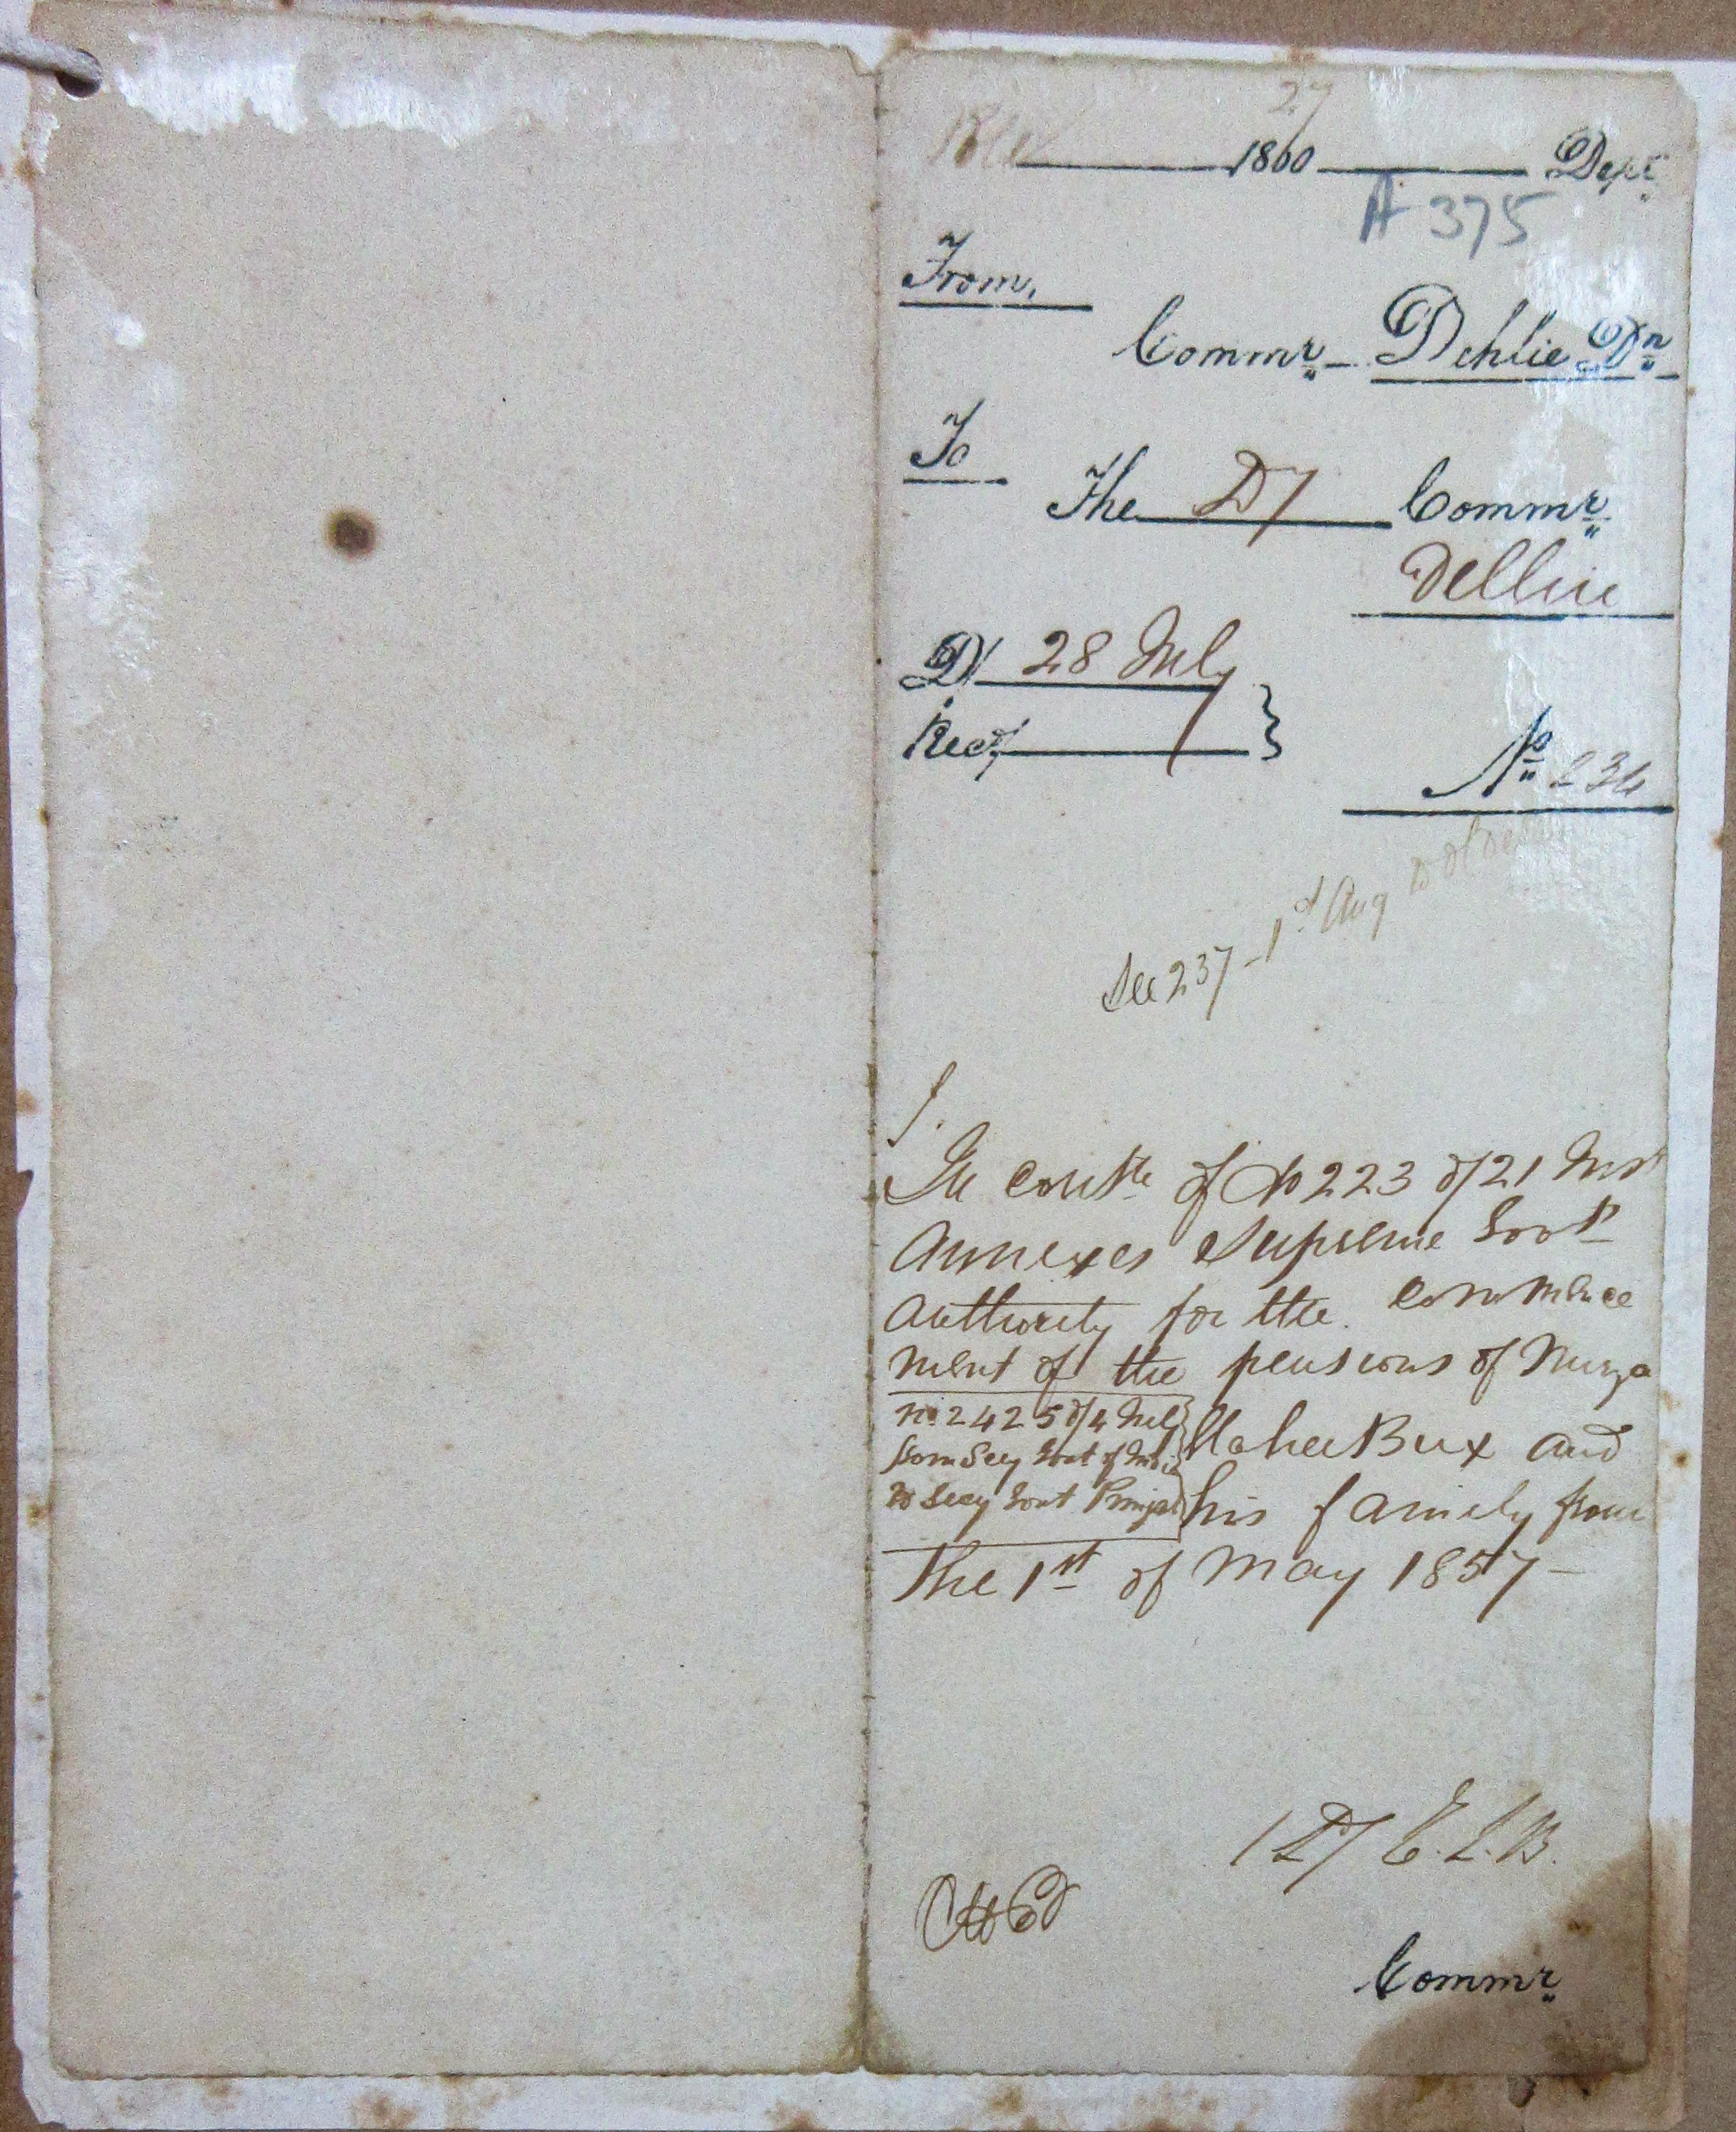 27
1860 Dept
A 375
From,
Commr Dehlie Dn
To
The Dy Commr
Dellie
D/ 28 July
Recd/
No 234
See 237 - 1st Aug to
In contn of No 223 d/21 Inst
Annexes Supreme Govt
authority for the Commence
ment of the pensions of Mirza
No 2425 d/4 July
from Secy Govt of India
to Secy Govt Punjab
Ilahee Bux and
his family from
the 1st of May 1857 -
E.L.B.
Commr